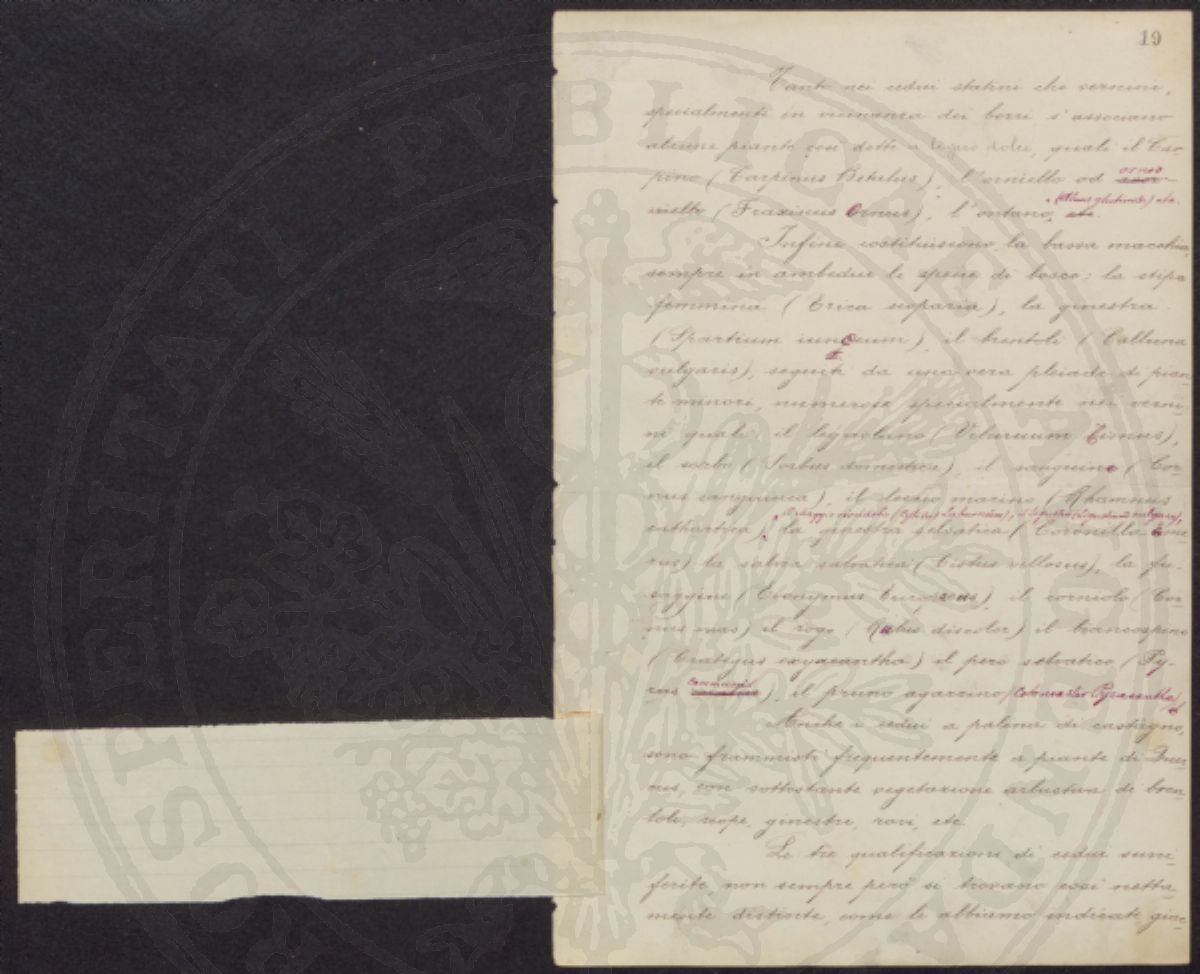 19
Tanto nei cedui statini che vernini,
specialmente in vicinanza dei borri s'associano
alcune piante così dette a legno dolce, quali il Car-
pino (Carpinus Betulus), l'orniello od orno
niello (Fraxinus Ornus), l'ontano, (Alnus glutinosa) etc.
Infine costituiscono la bassa macchia,
sempre in ambedue le specie di bosco; la stipa
femmina (Erica scoparia), la ginestra
(Spartium iunceum), il brentoli (Calluna
vulgaris), seguite da una vera pleiade di pian-
te minori, numerose specialmente nei verni-
ni quali il legnolano (Viburnum Tinus),
il sorbo (Sorbus domestica), il sanguine (Cor-
nus sanguinea), il marino (Rhamnus
(Cytisus Laburnum), il ligustro (Ligustrum vulgare),
cathartica), la ginestra selvatica (Coronilla Eme-
rus) la salvia salvatica (Cistus villosus), la fu-
saggine (Evonymus Europaeus), il corniolo (Cor-
nus mas) il rogo (Rubus discolor) il biancospino
(Crategus oxyacantha) il pero selvatico (Py-
rus communis), il pruno agazzino (Cotoneaster Pyracantha)
Anche i cedui a palina di castagno,
sono frammisti frequentemente a piante di Quer-
cus, con sottostante vegetazione arbustiva di bren-
toli, scope, ginestre, rovi, etc.
Le tre qualificazioni di cedui sum-
ferite non sempre però si trovano così netta-
mente distinte, come le abbiamo indicate, giac-